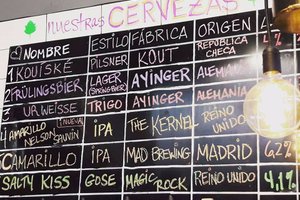 nuestras CERVEZAS
NOMBRE ESTILO FÁBRICA ORIGEN
1 KOUTSKÉ PILSNER KOUT REPUBLICA CHECA
2 FRÜLINGSBIER LAGER (SPRINGBIER) AYINGER ALEMANIA
3 URWEISSE TRIGO AYINGER ALEMANIA
AMARILLO NELSON SAUVIN IPA THE KERNEL REINO UNIDO
AMARILLO IPA MAD BREWING MADRID 6,2%
SALTY KISS GOSE MAGIC ROCK REINO UNIDO 4,1%